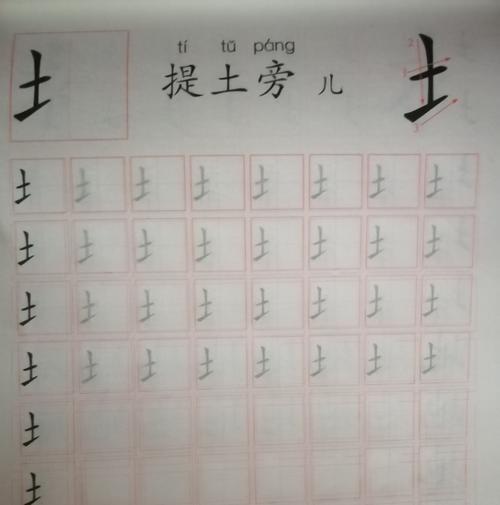 tí tǔ páng
提土旁 儿
2
1
3